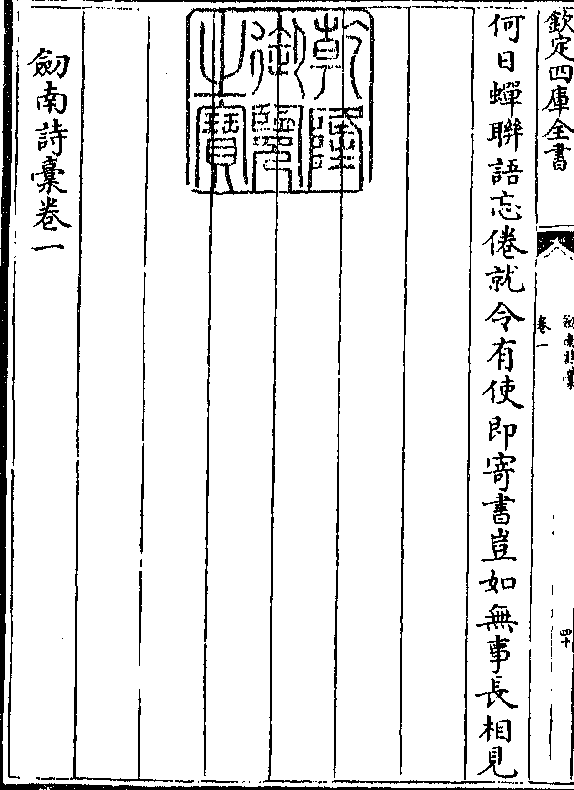 欽定四庫全書
劒南詩稾
卷一
四十
何日蟬聯語忘倦就令有使即寄書豈如無事長相見
乾隆御覽之寶
劒南詩稾卷一